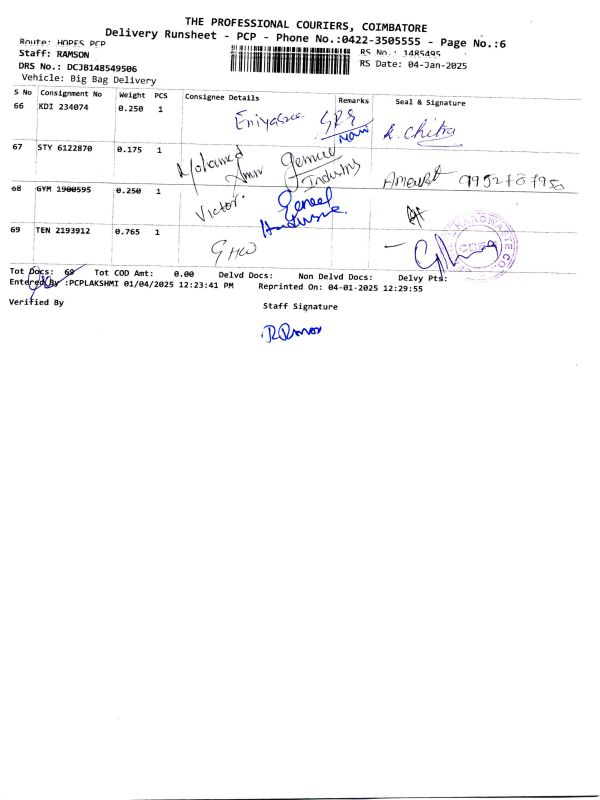 THE PROFESSIONAL COURIERS, COIMBATORE
Delivery Runsheet - PCP - Phone No.:0422-3505555 - Page No.:6
Route: HOPES PCP
RS No.: 1485495
Staff: RAMSON
RS Date: 04-Jan-2025
DRS No.: DCJB148549506
Vehicle: Big Bag Delivery
S No Consignment No Weight PCS Consignee Details Remarks Seal & Signature
66 KDI 234074 0.250 1 Eniyasree
67 STY 6122870 0.175 1 Mohamed Industry
68 GYM 1900595 0.250 1 Victor
69 TEN 2193912 0.765 1
Tot Docs: 69 Tot COD Amt: 0.00 Delvd Docs: Non Delvd Docs: Delvy Pts:
Entered By :PCPLAKSHMI 01/04/2025 12:23:41 PM Reprinted On: 04-01-2025 12:29:55
Verified By
Staff Signature